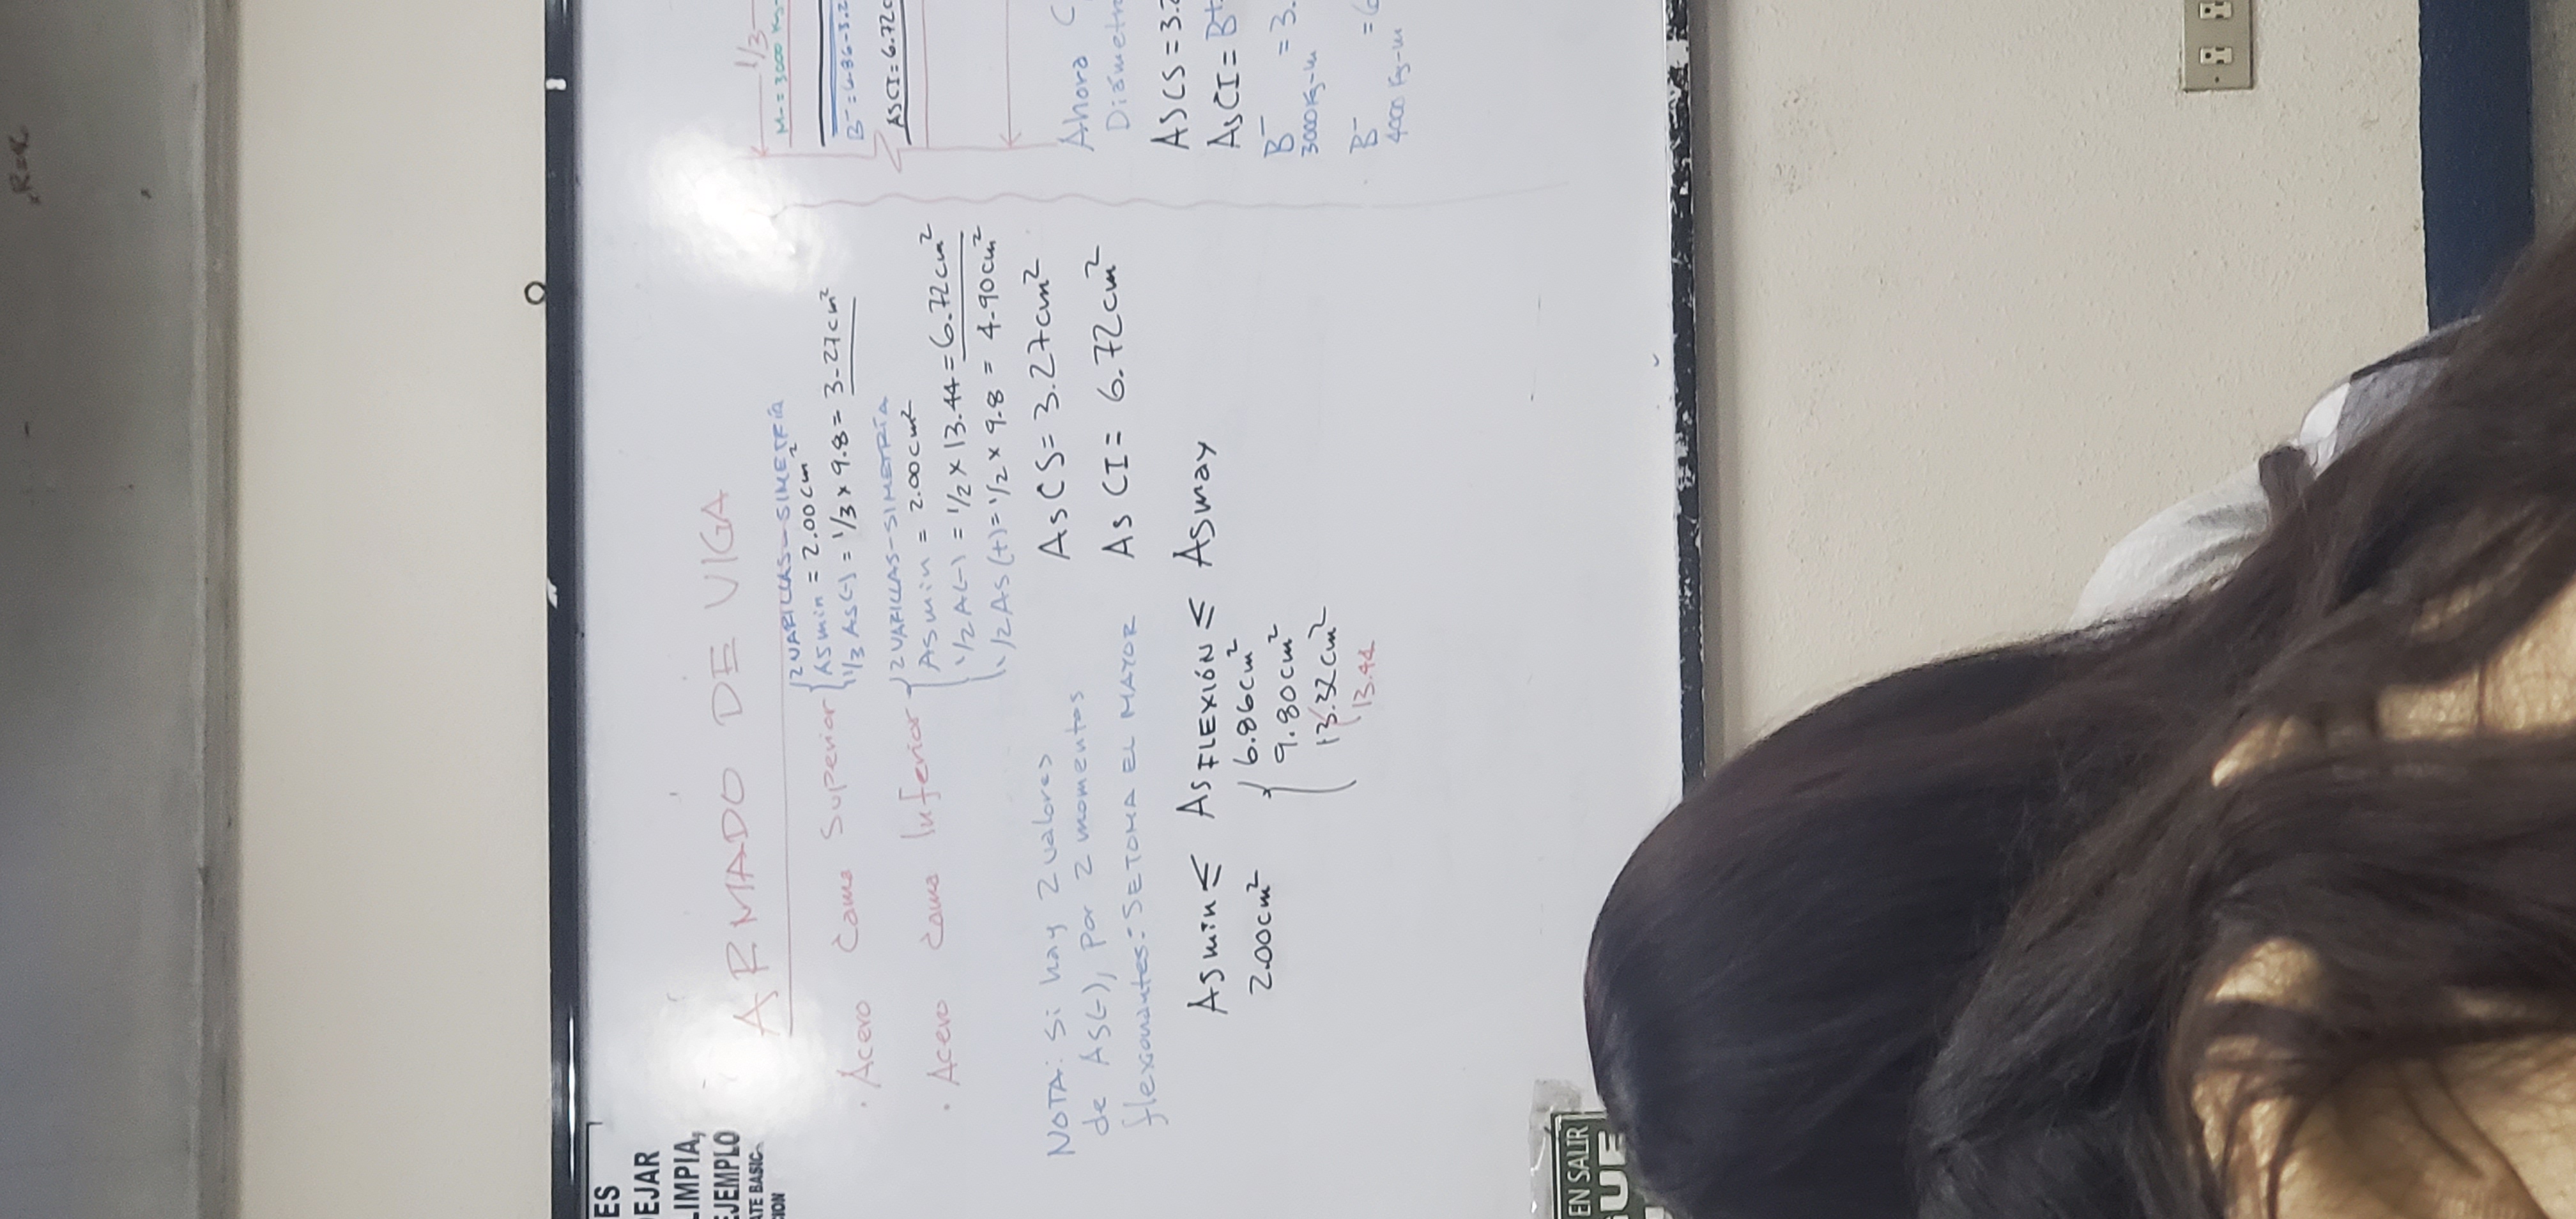 R=K
ES
DEJAR
LIMPIA,
EJEMPLO
ATE BASIC
ION
ARMADO DE VIGA
· Acero Cama Superior
2 VARILLAS - SIMETRÍA
Asmin = 2.00cm²
1/3 As(-) = 1/3 x 9.8 = 3.27cm²
· Acero Cama Inferior
2 VARILLAS - SIMETRÍA
Asmin = 2.00cm²
1/2 A(-) = 1/2 x 13.44 = 6.72cm²
1/2 As(+) = 1/2 x 9.8 = 4.90cm²
NOTA: Si hay 2 valores
de As(-), por 2 momentos
flexionantes: SE TOMA EL MAYOR
AsCS = 3.27cm²
AsCI = 6.72cm²
Asmin ≤ As FLEXIÓN ≤ Asmay
2.00cm²
6.86cm²
9.80cm²
13.32cm²
13.44
1/3
M- = 3000 Kg-
B⁻ = 6.86-3.2
ASCI = 6.72c
Ahora C
Diámetr
ASCS = 3.2
AsCI = B+
B⁻ = 3.
3000 Kg-m
B⁻ = 6
4000 Kg-m
EN SALIR
GUE